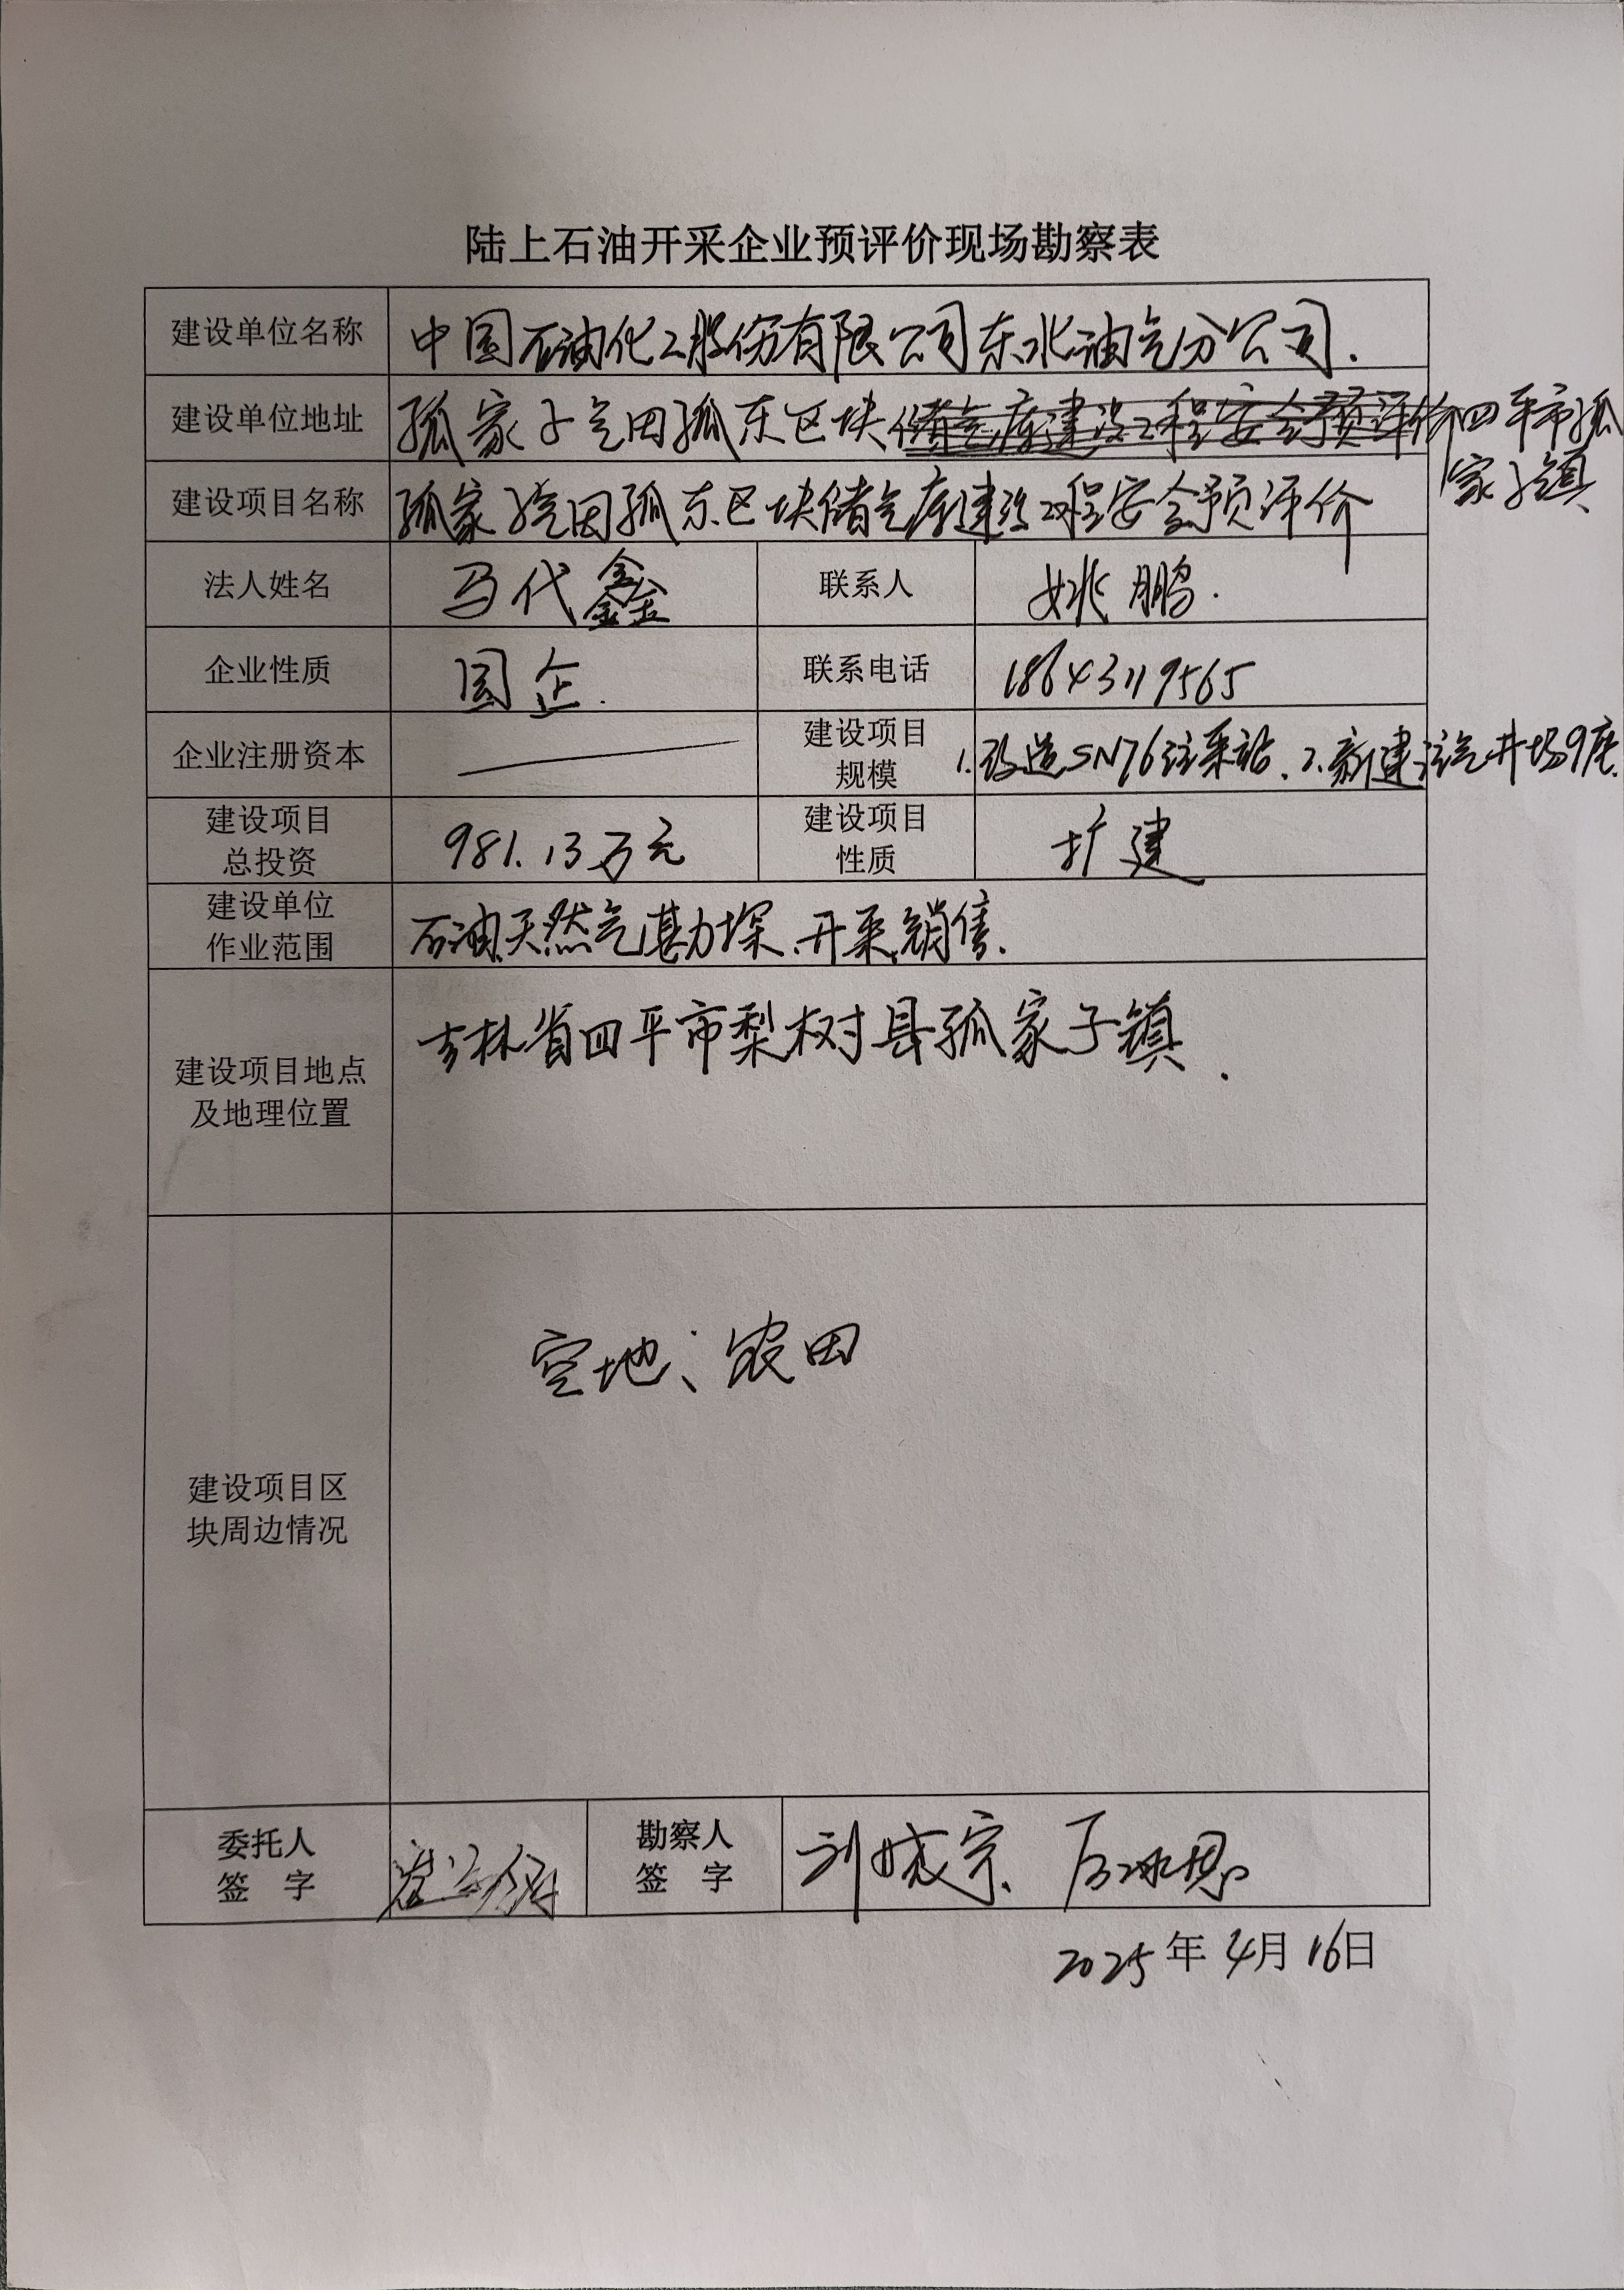 陆上石油开采企业预评价现场勘察表
建设单位名称 中国石油化工股份有限公司东北油气分公司.
建设单位地址 孤家子气田孤东区块储气库建设工程安全预评价四平市孤
家子镇
建设项目名称 孤家子气田孤东区块储气库建设工程安全预评价
法人姓名 马代鑫 联系人 姚鹏.
企业性质 国企. 联系电话 18643119565
企业注册资本 建设项目
规模 1.改造SN76注采站、2.新建注气井场9座.
建设项目
总投资 981.13万元 建设项目
性质 扩建
建设单位
作业范围 石油、天然气勘探、开采、销售.
建设项目地点
及地理位置 吉林省四平市梨树县孤家子镇.
建设项目区
块周边情况 空地、农田
委托人
签 字 勘察人
签 字 刘晓宗、
2025年4月16日